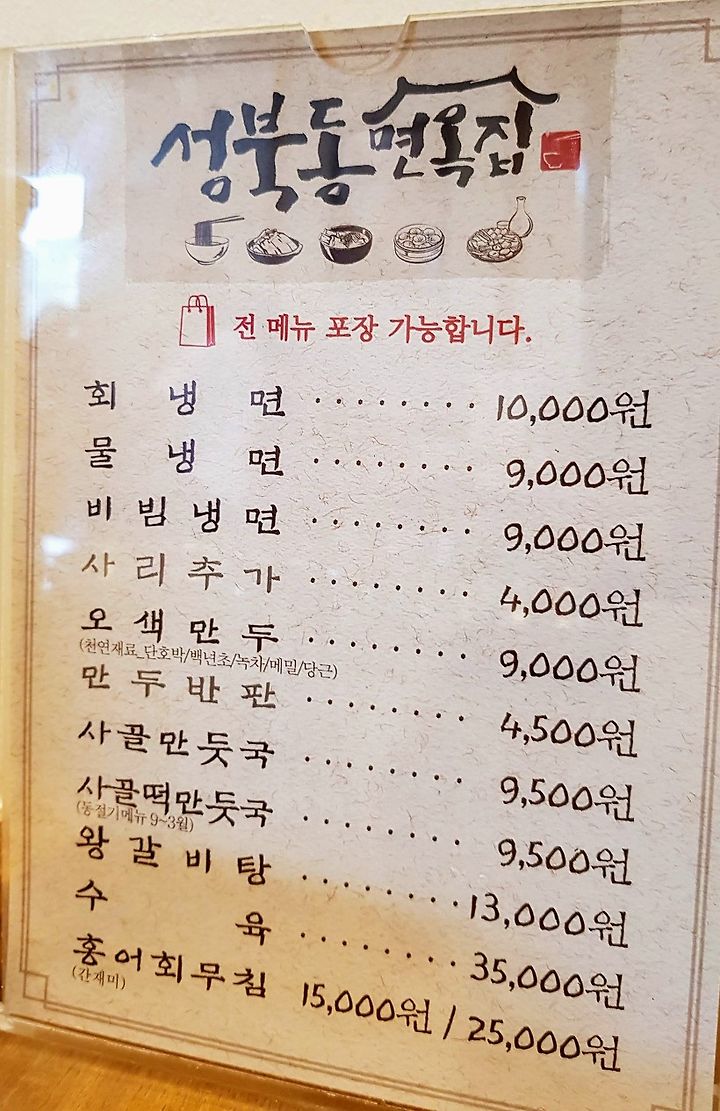 성북동면옥집
전 메뉴 포장 가능합니다.
회냉면 ········ 10,000원
물냉면 ········ 9,000원
비빔냉면 ········ 9,000원
사리추가 ········ 4,000원
오색만두 ········ 9,000원
(천연재료_단호박/백년초/녹차/메밀/당근)
만두반판 ········ 4,500원
사골만둣국 ········ 9,500원
사골떡만둣국 ········ 9,500원
(동절기메뉴 9~3월)
왕갈비탕 ········ 13,000원
수육 ········ 35,000원
홍어회무침 15,000원 / 25,000원
(간재미)